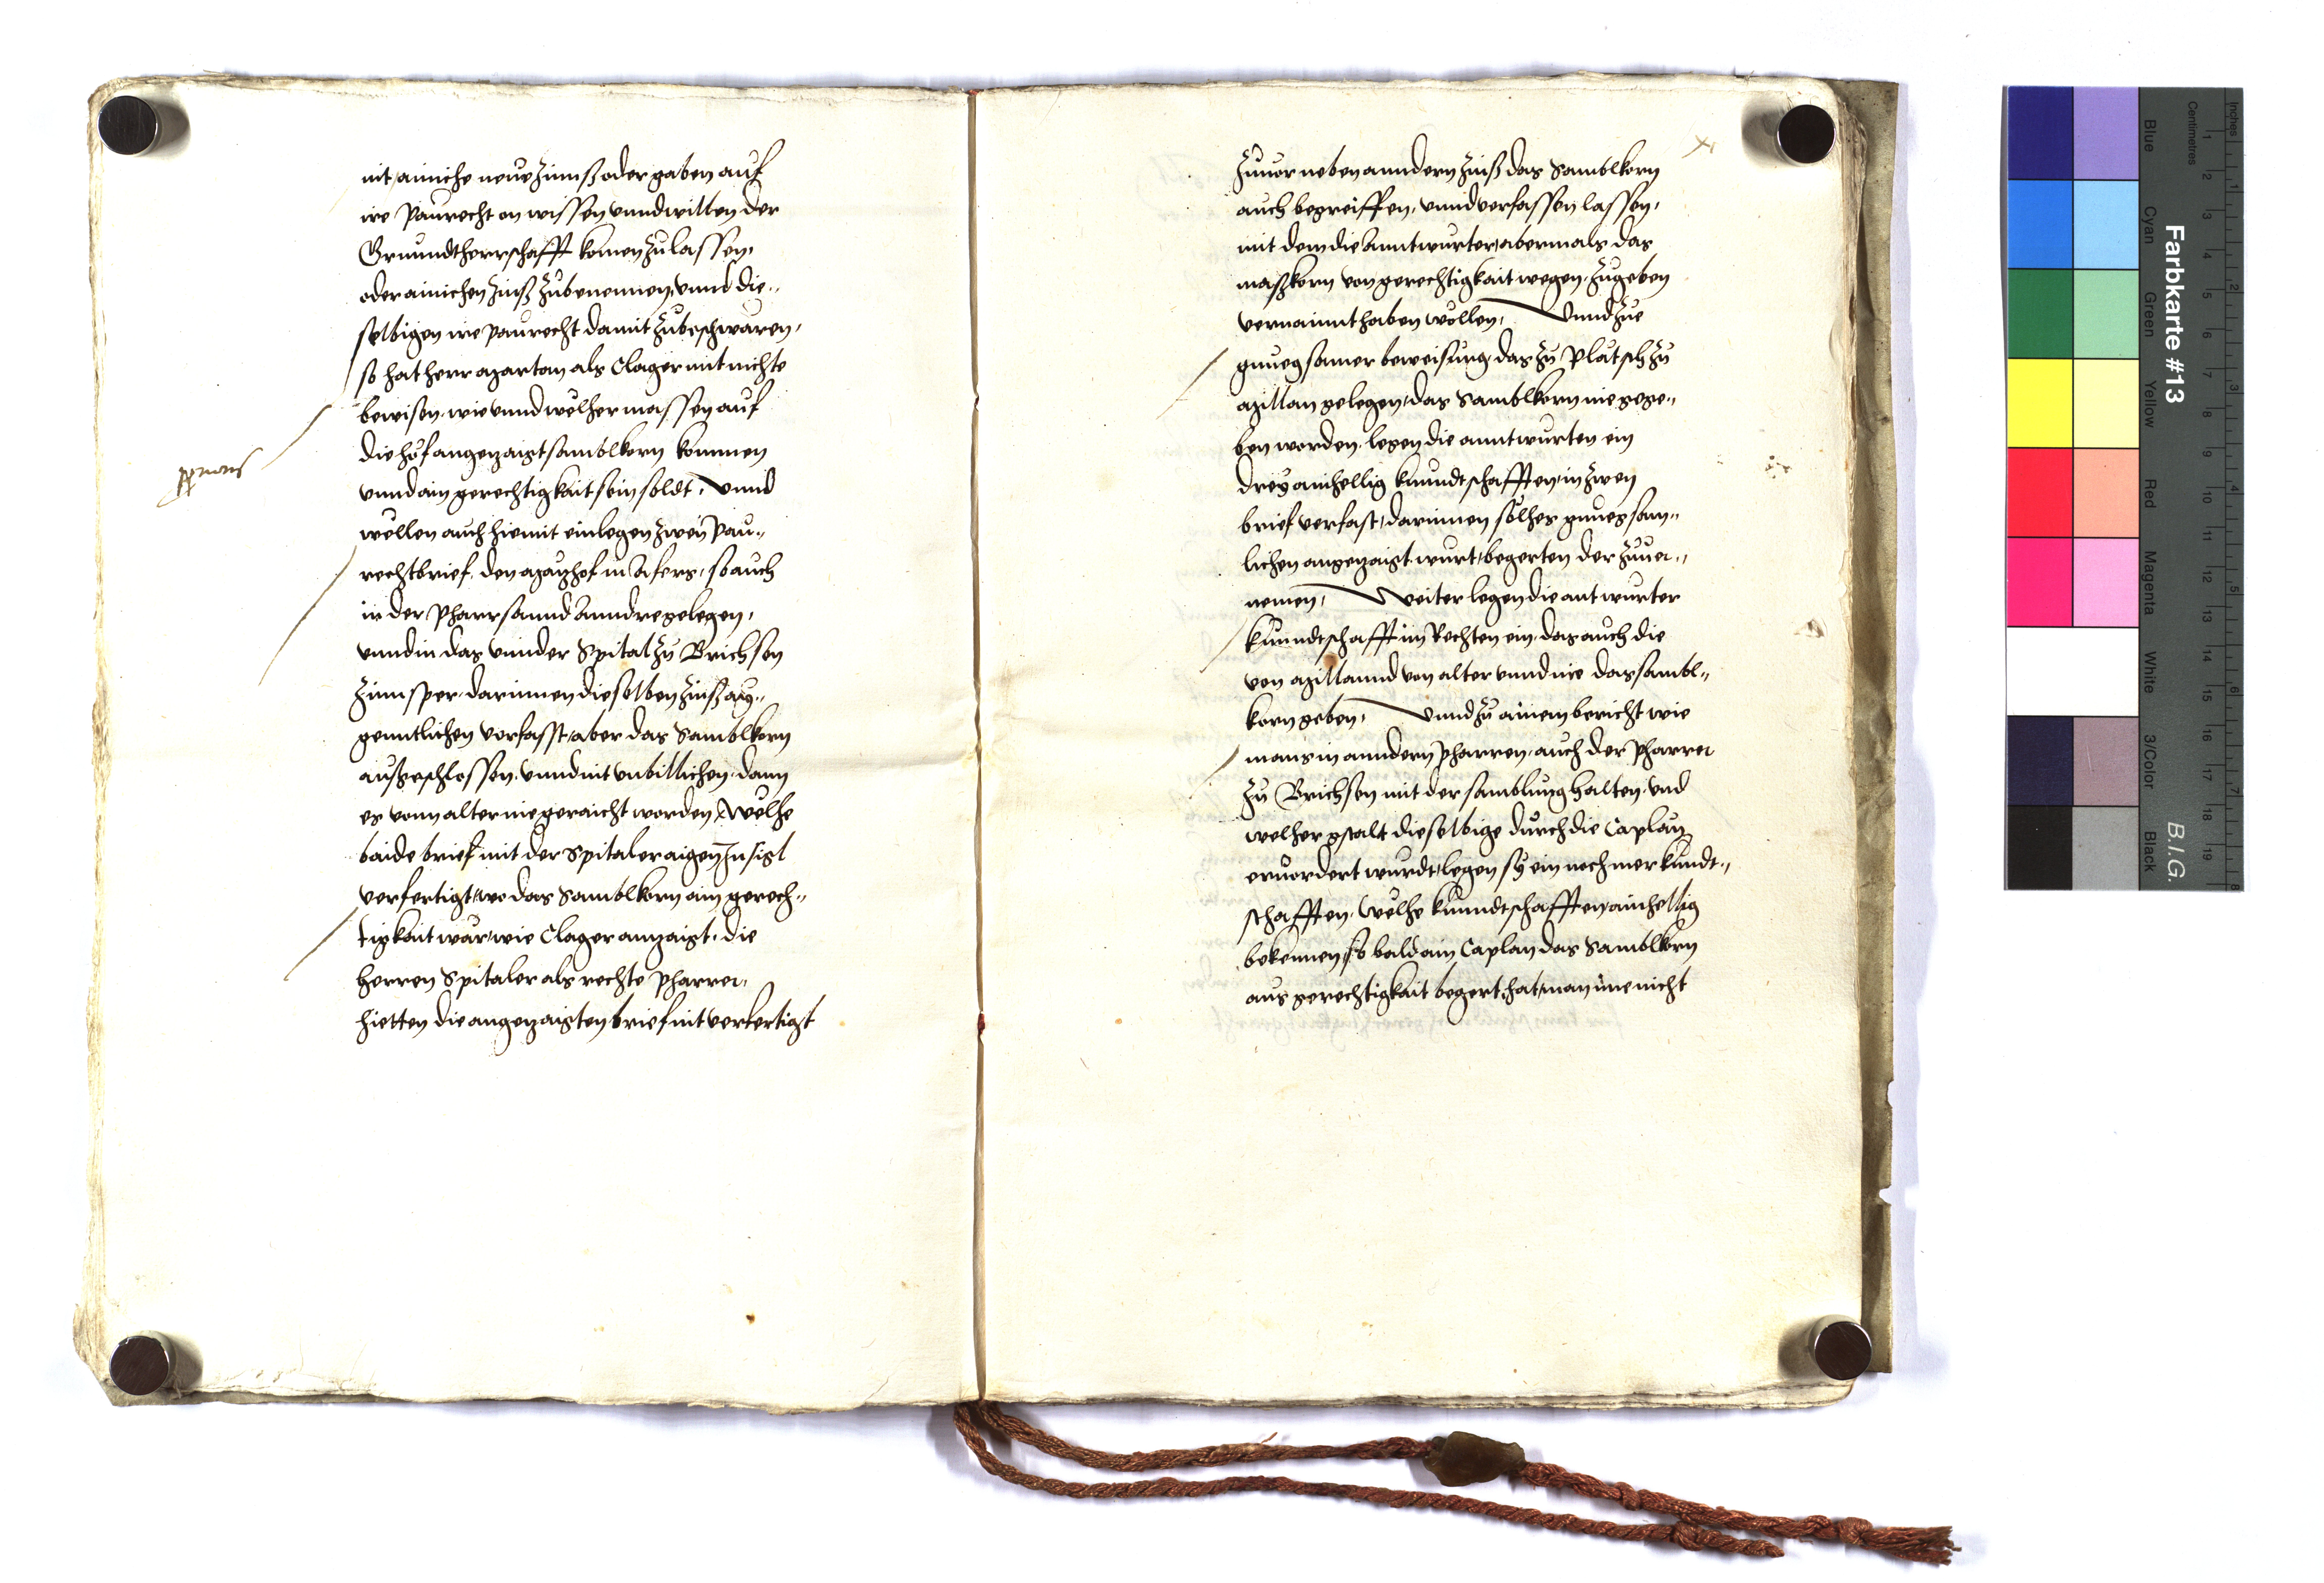 nit ainiche neue zinnß oder gaben auf
ire Paurecht on wissen vnnd willen der
Grunndtherrschafft komen zu lassen,
oder ainichen zinß zubenennen, vnnd die„
selbigen ire paurecht damit zubeschwären,
so hat herr als Clager mit nichte
bewisen, wie vnnd welher massen auf
die höf angezaigt samblkorn kommen
vnnd ain gerechtigkait sein soldt, Vnnd
wellen auch hiemit einlegen zwen Pau„
rechtbrief, den in Afers, so auch
in der Pharr sannd Anndre gelegen,
vnnd in das vnnder Spital zu Brichsen
zinnsper, darinnen dieselben zinß aig„
genntlichen verfasst, aber das Samblkorn
außgeschlossen, vnnd nit vnbillichen, dann
es vonn alter nie geraicht worden, Welhe
baide brief mit der Spitaler aigen Insigl
verfertigt, wo das Samblkorn ain gerech„
tigkait war, wie Clager anzaigt, die
herren Spitaler als rechte Pharrer,
hietten die angezaigten brief nit verfertigt
xi
Zuuor neben anndern zinß das Samblkorn
auch begreiffen, vnnd verfassen lassen,
mit dem die Anntwurter, abermals das
maßkorn von gerechtigkait wegen, zugeben
vernainnt haben wöllen, Vnnd zue
gnuegsamer beweisung, das zu Platsch zu
gelegen, das Samblkorn nie gege„
ben worden, legen die anntwurten ein
drey ainhellig kunndtschafften, in zwen
brief verfast, darinnen sölhes gnuegsam„
lichen angezaigt wurt, begerten der zuuer„
nemen, Weiter legen die antwurter
kunndtschafft im Rechten ein, das auch die
von von alter vnnd nie das sambl„
korn geben, Vnnd zu ainem bericht wie
mans in anndern Pharren, auch der Pharrer
zu Brichsen mit der samblung halten, vnd
welher gstalt dieselbige durch die Caplän
eruordert wurdt, legen sy ein noch mer kundt„
schafften, Welhe kunndtschafften, ainhellig
bekennen, so bald ain Caplan das Samblkorn
aus gerechtigkait begert, hat man ime nicht